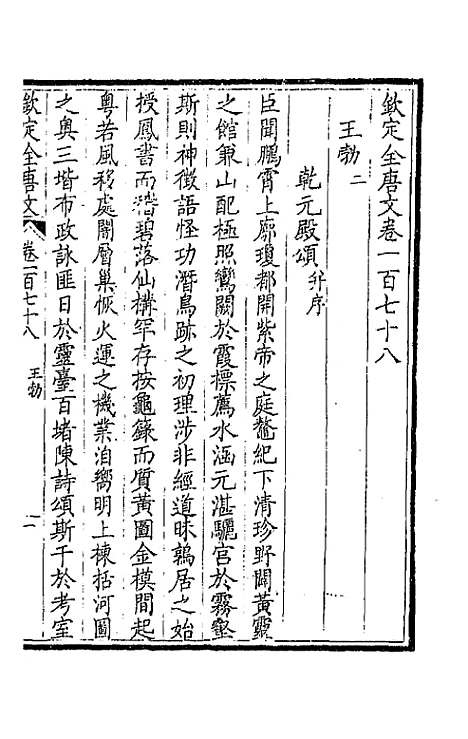 欽定全唐文卷一百七十八
王勃二
乾元殿頌并序
臣聞鵬霄上廓瓊都開紫帝之庭鼇紀下清珍野闢黃靈
之館兼山配極照鸞闕於霞標薦水涵元湛驪宮於霧壑
斯則神徵語怪功潛鳥跡之初理涉非經道昧鶉居之始
授鳳書而潛碧落仙構罕存按龜籙而質黃圖金模間起
粵若風移處闇層巢恢火運之機業洎嚮明上棟括河圖
之奧三階布政詠匪日於靈臺百堵陳詩頌斯干於考室
欽定全唐文 卷一百七十八 王勃 一